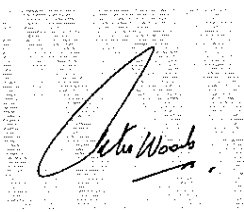 Peter Woods